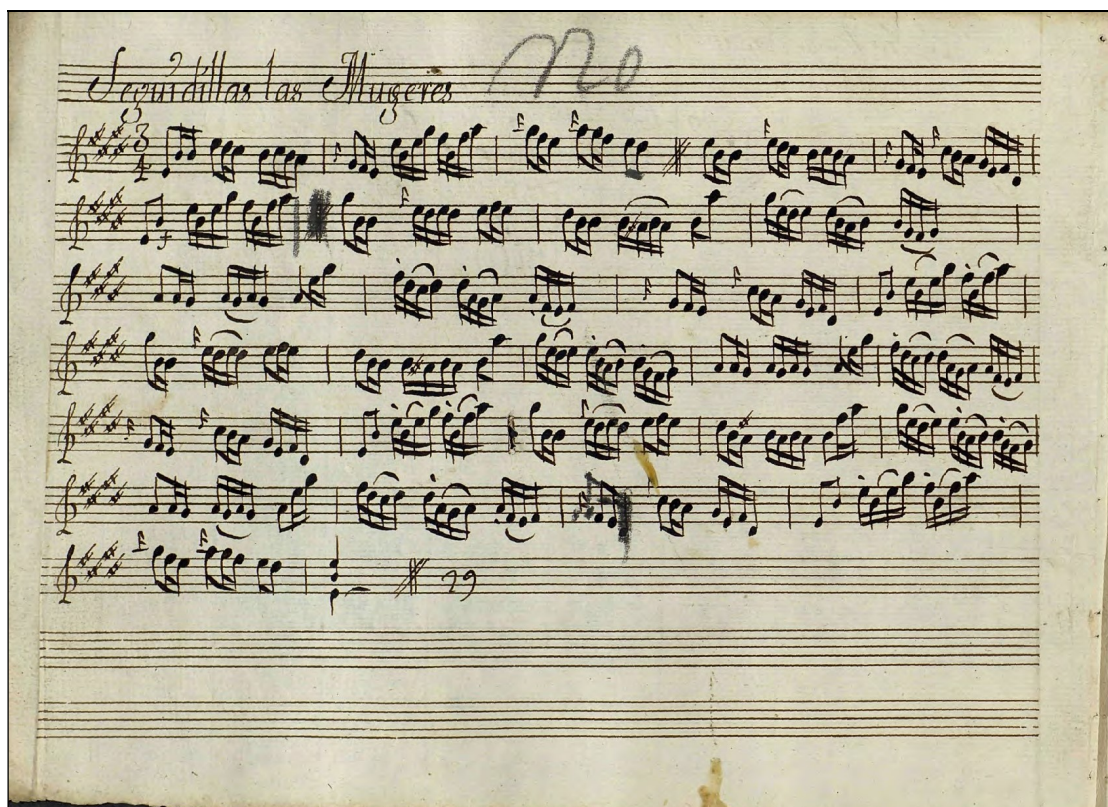 Seguidillas las Mugeres no
3
4
f
29